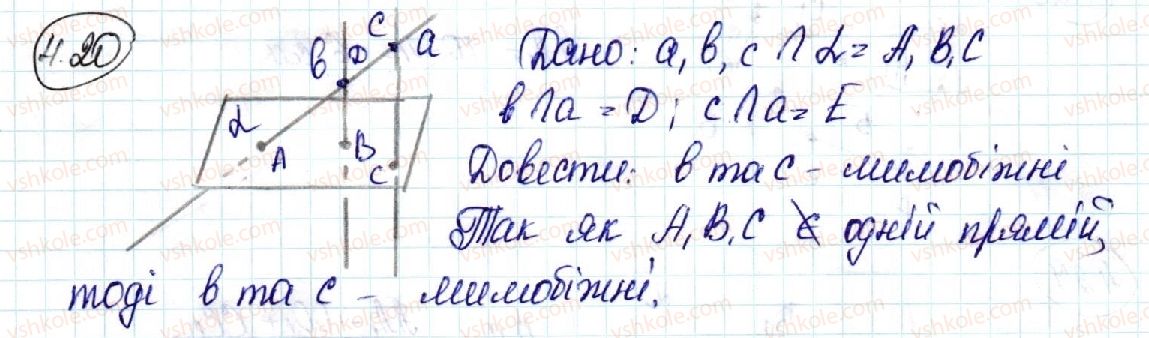 4.20
c a
b D
α
A B
C
Дано: a, b, c ∩ α = A, B, C
b ∩ a = D; c ∩ a = E
Довести: b та c - мимобіжні
Так як A, B, C ∉ одній прямій,
тоді b та c - мимобіжні.